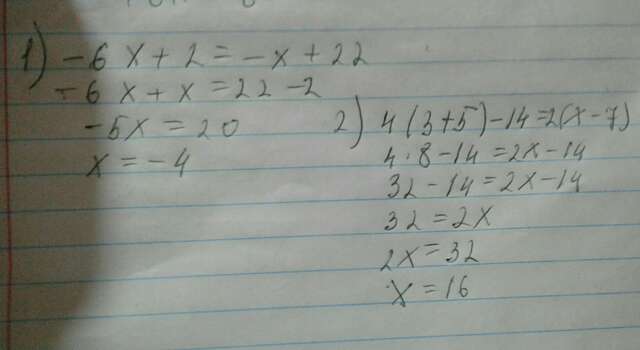 1) -6x+2=-x+22
-6x+x=22-2
-5x=20
x=-4
2) 4(3+5)-14=2(x-7)
4·8-14=2x-14
32-14=2x-14
32=2x
2x=32
x=16